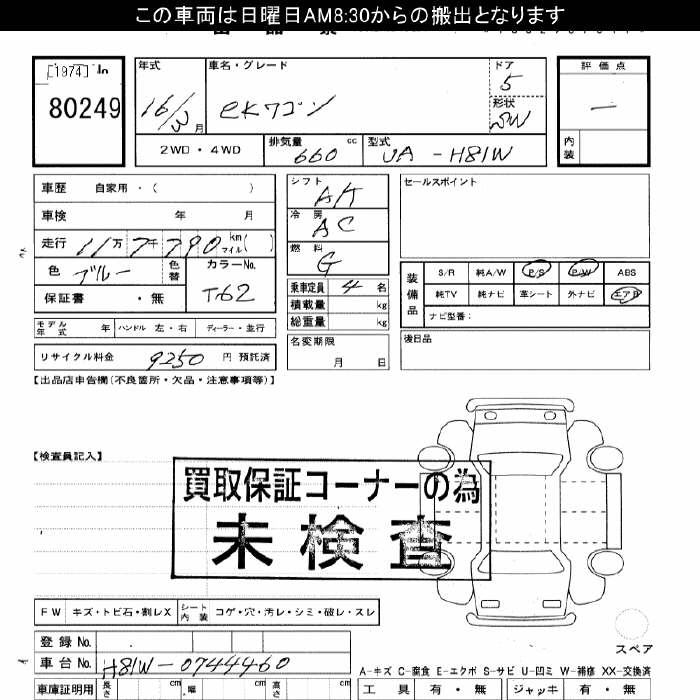 この車両は日曜日AM8:30からの搬出となります
[1974] In
80249
年式
車名・グレード
ドア
評価点
16/3月
eKワゴン
5
形状
SW
—
2WD・4WD
排気量 660 cc
型式 UA - H81W
内装
車歴 自家用・( )
車検 年 月
走行 11万7千790 km マイル( )
色 ブルー 色替
カラーNo. T62
保証書 ・無
モデル年式 年 ハンドル 左・右 ディーラー・並行
リサイクル料金 9250 円 預託済
シフト AT
冷房 AC
燃料 G
乗車定員 4 名
積載量 kg
総重量 kg
名変期限
月 日
セールスポイント
装備品
S/R 純A/W P/S P/W ABS
純TV 純ナビ 革シート 外ナビ エアB
ナビ型番:
後日品
【出品店申告欄(不良箇所・欠品・注意事項等)】
【検査員記入】
買取保証コーナーの為
未検査
FW キズ・トビ石・割レX シート内装 コゲ・穴・汚レ・シミ・破レ・スレ
スペア
登録No.
車台No. H81W-0744460
A-キズ C-腐食 E-エクボ S-サビ U-凹ミ W-補修 XX-交換済
車庫証明用 長さ cm 幅 cm cm
工具 有・無 ジャッキ 有・無